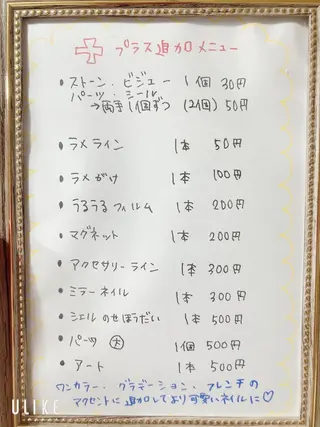 プラス追加メニュー
・ストーン・ビジュー 1個 30円
パーツ・シール
→両手1個ずつ (2個) 50円
・ラメライン 1本 50円
・ラメがけ 1本 100円
・うるうるフィルム 1本 200円
・マグネット 1本 200円
・アクセサリーライン 1本 300円
・ミラーネイル 1本 300円
・シェルのせほうだい 1本 500円
・パーツ 大 1個 500円
・アート 1本 500円
ワンカラー・グラデーション・フレンチの
アクセントに追加してより可愛いネイルに♡
ULIKE